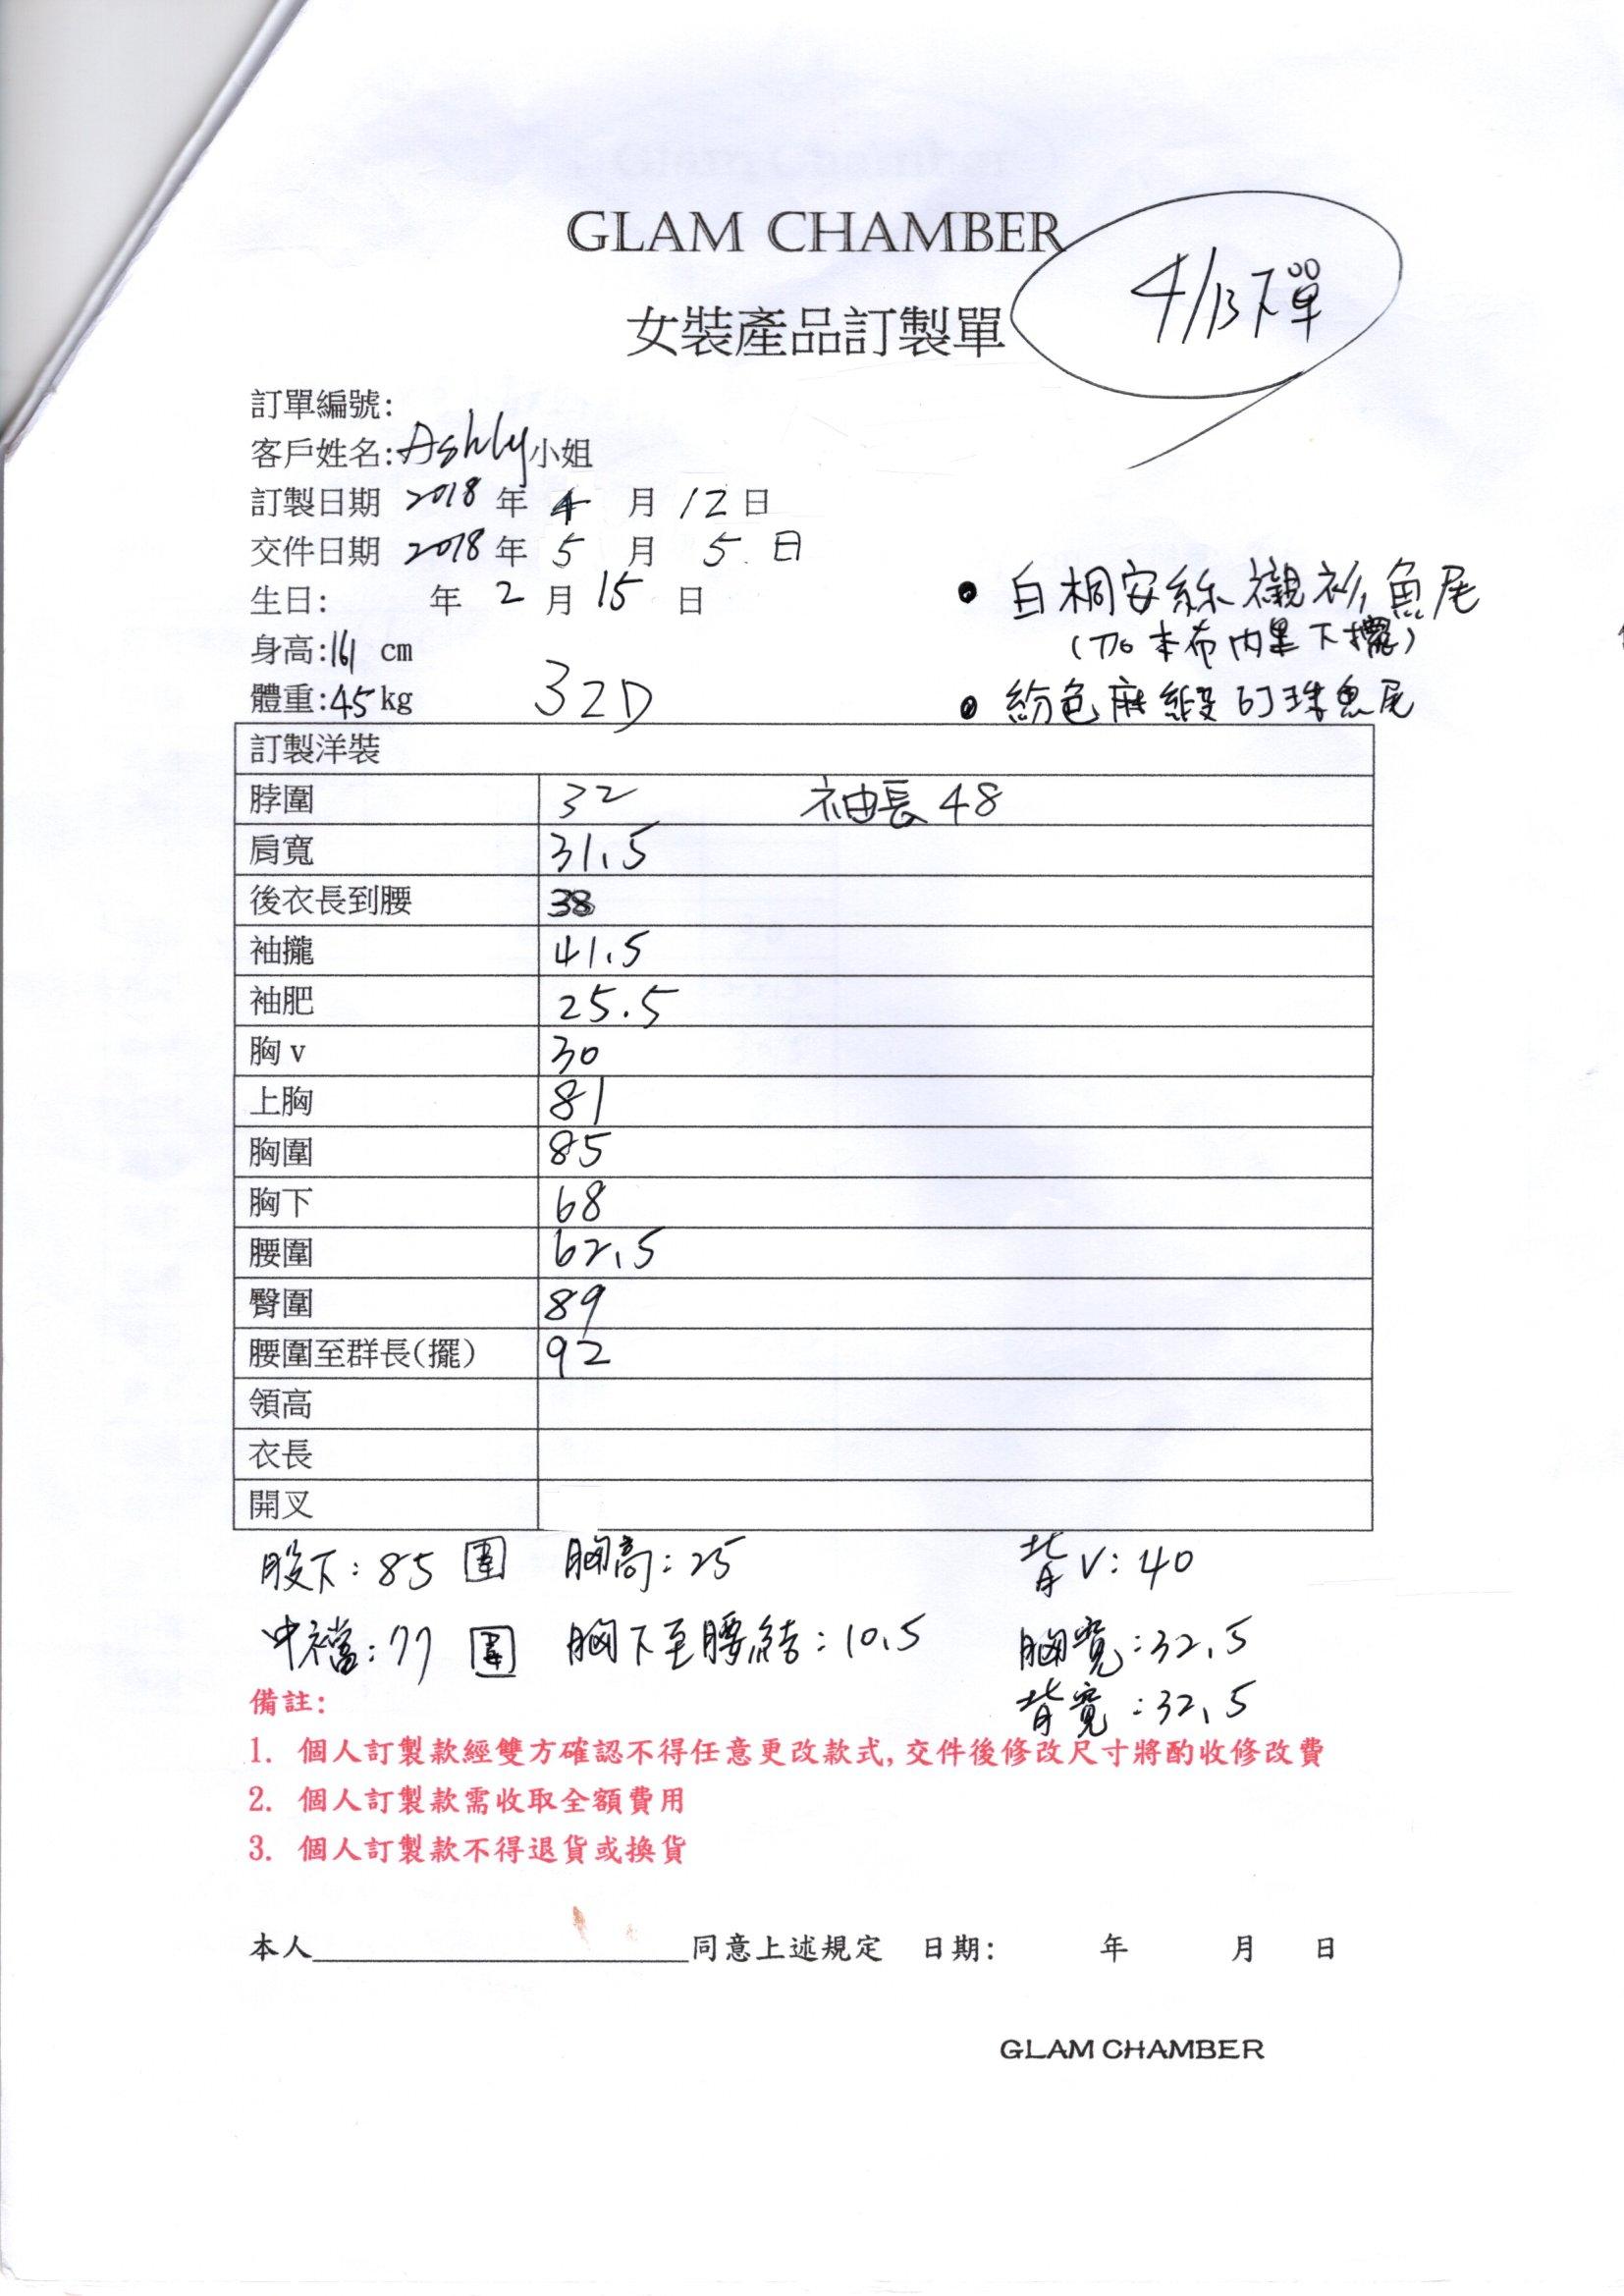 GLAM CHAMBER
4/13下單
女裝產品訂製單
訂單編號:
客戶姓名:Ashly小姐
訂製日期 2018 年 4 月 12 日
交件日期 2018 年 5 月 5 日
生日: 年 2 月 15 日
身高:161 cm
體重:45kg 32D
• 白桐安絲襯衫魚尾
(加本布內裏下擺)
• 紛色麻緞釘珠魚尾
訂製洋裝
脖圍 32 袖長 48
肩寬 31.5
後衣長到腰 38
袖攏 41.5
袖肥 25.5
胸 v 30
上胸 81
胸圍 85
胸下 68
腰圍 62.5
臀圍 89
腰圍至群長(擺) 92
領高
衣長
開叉
股下:85 圍 胸高:25 背V:40
中襠:77 圍 胸下至腰結:10.5 胸寬:32.5
背寬:32.5
備註:
1. 個人訂製款經雙方確認不得任意更改款式,交件後修改尺寸將酌收修改費
2. 個人訂製款需收取全額費用
3. 個人訂製款不得退貨或換貨
本人 同意上述規定 日期: 年 月 日
GLAM CHAMBER